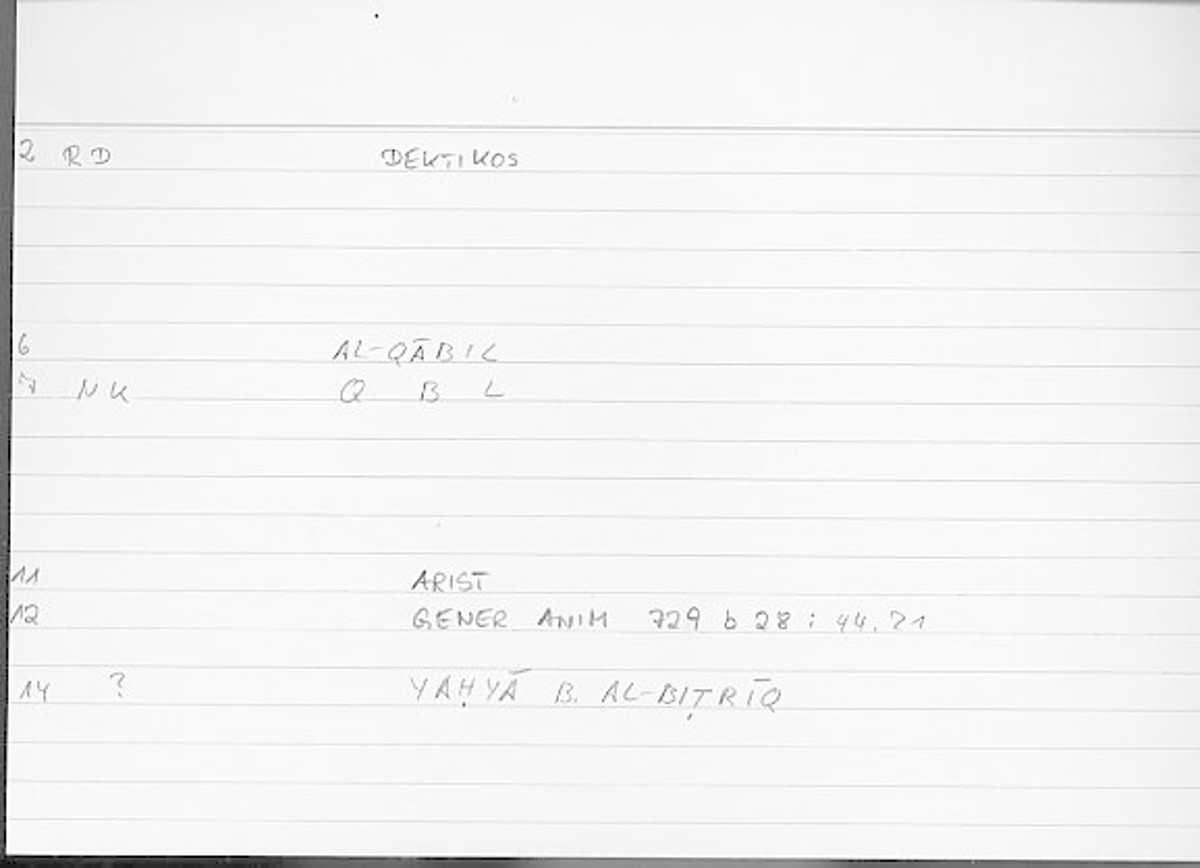 2 RD DEKTIKOS
6 AL-QĀBIL
7 NK Q B L
11 ARIST
12 GENER ANIM 729 b 28 : 44.21
14 ? YAḤYĀ B. AL-BIṬRĪQ